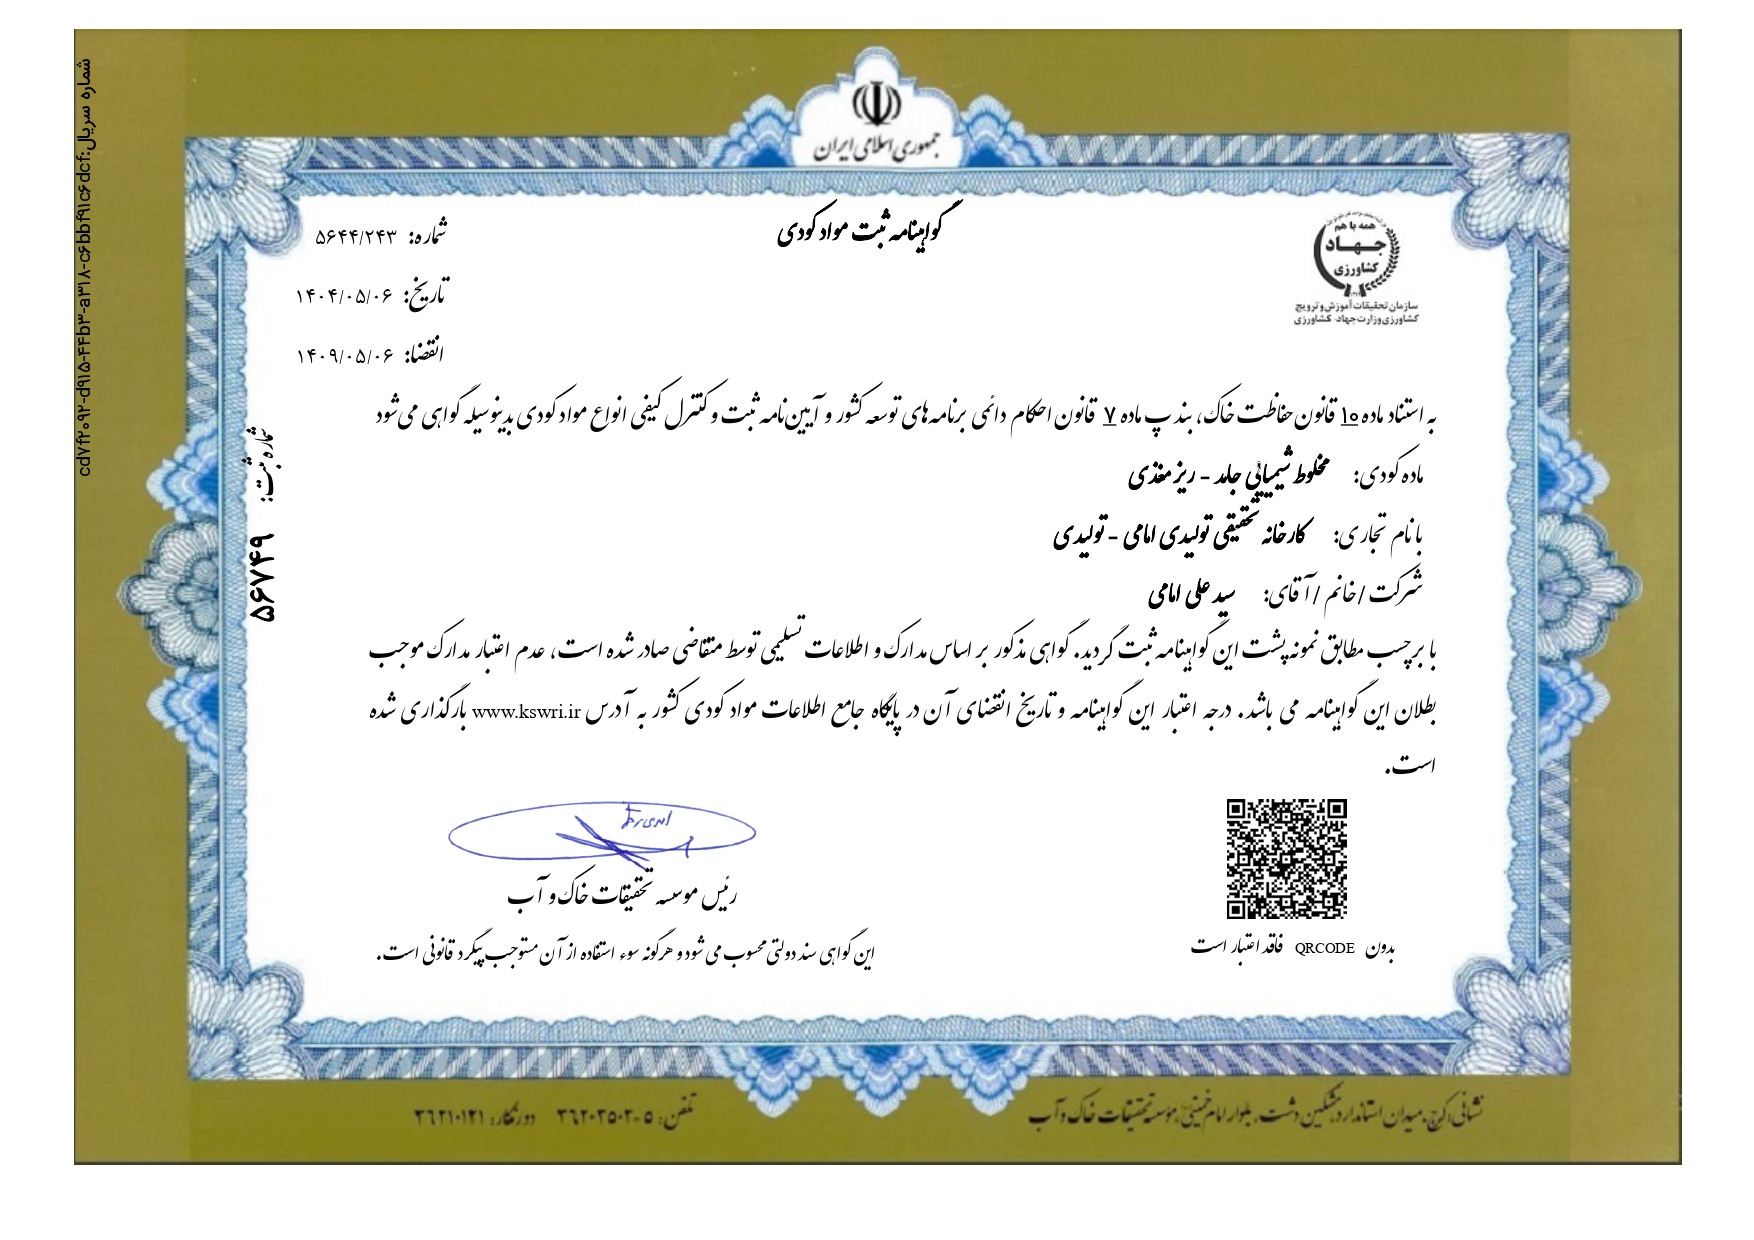 جمهوری اسلامی ایران
گواهینامه ثبت مواد کودی
همه با هم
جهاد
کشاورزی
سازمان تحقیقات آموزش و ترویج
کشاورزی وزارت جهاد کشاورزی
شماره: ۵۶۴۴/۲۴۳
تاریخ: ۱۴۰۴/۰۵/۰۶
انقضا: ۱۴۰۹/۰۵/۰۶
به استناد ماده ۱۰ قانون حفاظت خاک، بند پ ماده ۷ قانون احکام دائمی برنامه های توسعه کشور و آیین نامه ثبت و کنترل کیفی انواع مواد کودی بدینوسیله گواهی می شود
ماده کودی: مخلوط شیمیایی جامد - ریز مغذی
با نام تجاری: کارخانه تحقیقی تولیدی امامی - تولیدی
شرکت / خانم / آقای: سید علی امامی
با برچسب مطابق نمونه پشت این گواهینامه ثبت گردید. گواهی مذکور بر اساس مدارک و اطلاعات تسلیمی توسط متقاضی صادر شده است، عدم اعتبار مدارک موجب
بطلان این گواهینامه می باشد. درجه اعتبار این گواهینامه و تاریخ انقضای آن در پایگاه جامع اطلاعات مواد کودی کشور به آدرس www.kswri.ir بارگذاری شده
است.
رئیس موسسه تحقیقات خاک و آب
بدون QRCODE فاقد اعتبار است
این گواهی سند دولتی محسوب می شود و هرگونه سوء استفاده از آن مستوجب پیگرد قانونی است.
شماره ثبت: ۵۶۷۴۹
شماره سریال:cd۷f۲۰۹۲-d۹۱۵-۴۴b۳-a۳۱۸-c۶bbf۹۱c۶dcf
نشانی: کرج، میدان استاندارد، مشکین دشت، بلوار امام خمینی، موسسه تحقیقات خاک و آب
تلفن: ۵-۳۶۲۰۳۵۰۲ دورنگار: ۳۶۲۱۰۱۲۱